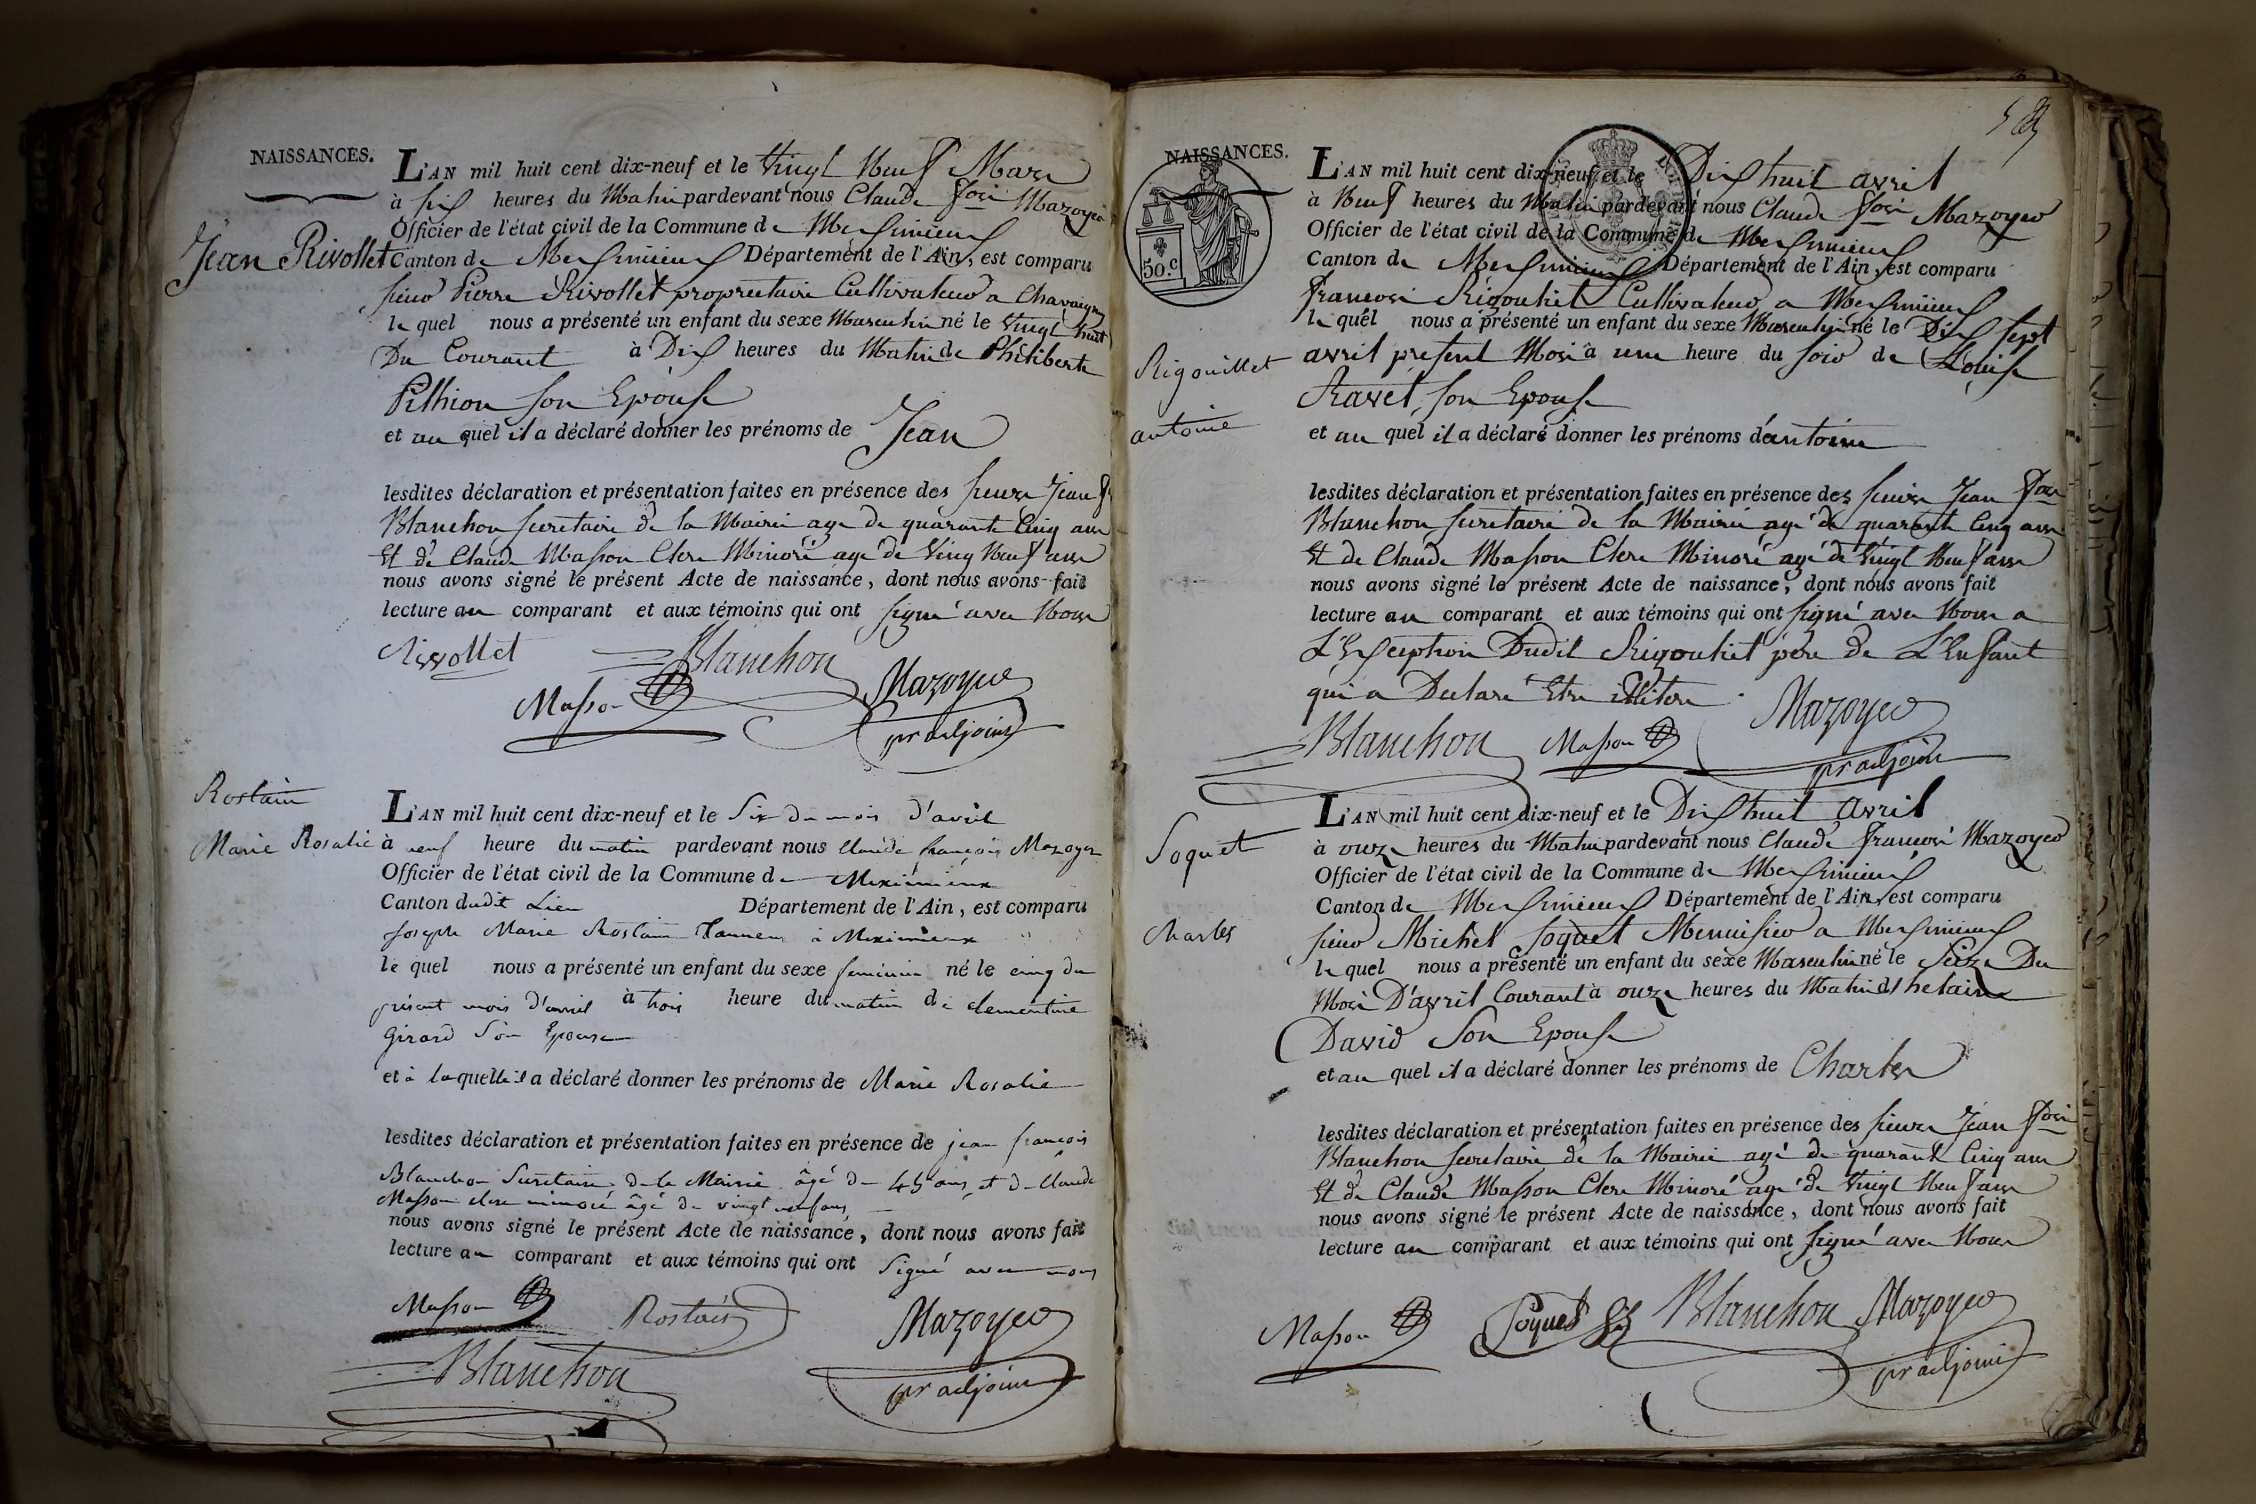 NAISSANCES.
Jean Rivollet
L'AN mil huit cent dix-neuf et le Vingt Neuf Mars
à six heures du Matin pardevant nous Claude fcois Mazoyer
Officier de l'état civil de la Commune de Mexsimieux
Canton de Mexsimieux Département de l'Ain, est comparu
sieur Pierre Rivollet proprietaire Cultivateur a Chavagny
le quel nous a présenté un enfant du sexe Masculin né le Vingt huit
Du Courant à Dix heures du Matin de Philiberte
Pithion son Epouse
et au quel il a déclaré donner les prénoms de Jean
lesdites déclaration et présentation faites en présence des sieurs Jean f
Blanchon secretaire de la Mairie agé de quarante Cinq ans
Et de Claude Masson Clerc Minoré agé de Vingt Neuf ans
nous avons signé le présent Acte de naissance, dont nous avons fait
lecture au comparant et aux témoins qui ont signé avec Nous
Rivollet Blanchon
Masson Mazoyer
pr adjoint
Rostain
Marie Rosalie
L'AN mil huit cent dix-neuf et le Six du mois d'avril
à neuf heure du matin pardevant nous Claude françois Mazoyer
Officier de l'état civil de la Commune de Meximieux
Canton dudit Lieu Département de l'Ain, est comparu
Joseph Marie Rostain Tanneur à Meximieux
le quel nous a présenté un enfant du sexe feminin né le cinq du
présent mois d'avril à trois heure du matin de clementine
Girard Son Epouse
et à laquelle il a déclaré donner les prénoms de Marie Rosalie
lesdites déclaration et présentation faites en présence de jean françois
Blanchon Secretaire de la Mairie âgé de 45 ans et de Claude
Masson clerc minoré âgé de vingt neuf ans
nous avons signé le présent Acte de naissance, dont nous avons fait
lecture au comparant et aux témoins qui ont Signé avec nous
Masson Rostain Mazoyer
Blanchon pr adjoint
NAISSANCES.
50.c
Rigouillet
antoine
L'AN mil huit cent dix-neuf et le Dix huit avril
à Neuf heures du Matin pardevant nous Claude fcois Mazoyer
Officier de l'état civil de la Commune de Mexsimieux
Canton de Mexsimieux Département de l'Ain, est comparu
francois Rigouliet Cultivateur a Mexsimieux
le quel nous a présenté un enfant du sexe Masculin né le Dix sept
avril present Mois à une heure du soir de Louise
Ravet son Epouse
et au quel il a déclaré donner les prénoms d'antoine
lesdites déclaration et présentation faites en présence des sieurs Jean fcois
Blanchon secretaire de la Mairie agé de quarante Cinq ans
Et de Claude Masson Clerc Minoré agé de Vingt Neuf ans
nous avons signé le présent Acte de naissance, dont nous avons fait
lecture au comparant et aux témoins qui ont signé avec Nous a
L'Exception Dudit Rigouliet père de L'Enfant
qui a Declaré Etre illitere.
Blanchon Masson Mazoyer
pr adjoint
Soquet
Charles
L'AN mil huit cent dix-neuf et le Dix huit avril
à onze heures du Matin pardevant nous Claude francois Mazoyer
Officier de l'état civil de la Commune de Mexsimieux
Canton de Mexsimieux Département de l'Ain, est comparu
sieur Michel Soquet Menuisier a Mexsimieux
le quel nous a présenté un enfant du sexe Masculin né le Seize Du
Mois D'avril Courant à onze heures du Matin d'helaine
David Son Epouse
et au quel il a déclaré donner les prénoms de Charles
lesdites déclaration et présentation faites en présence des sieurs Jean fcois
Blanchon secretaire de la Mairie agé de quarante Cinq ans
Et de Claude Masson Clerc Minoré agé de Vingt Neuf ans
nous avons signé le présent Acte de naissance, dont nous avons fait
lecture au comparant et aux témoins qui ont signé avec Nous
Masson Soquet Blanchon Mazoyer
pr adjoint